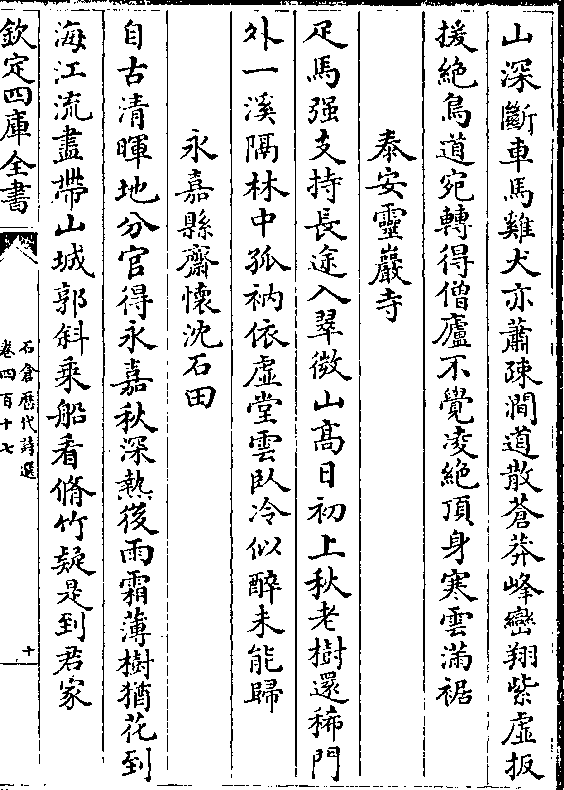 山深斷車馬雞犬亦蕭疎澗道散蒼莽峰巒翔紫虚扳
援絶鳥道宛轉得僧廬不覺凌絶頂身寒雲滿裾
泰安靈巖寺
足馬强支持長途入翠微山髙日初上秋老樹還稀門
外一溪隔林中孤衲依虚堂雲卧冷似醉未能歸
永嘉縣齋懷沈石田
自古清暉地分官得永嘉秋深熱後雨霜薄樹猶花到
海江流盡帶山城郭斜乗船看脩竹疑是到君家
欽定四庫全書
石倉歴代詩選
卷四百十七
十